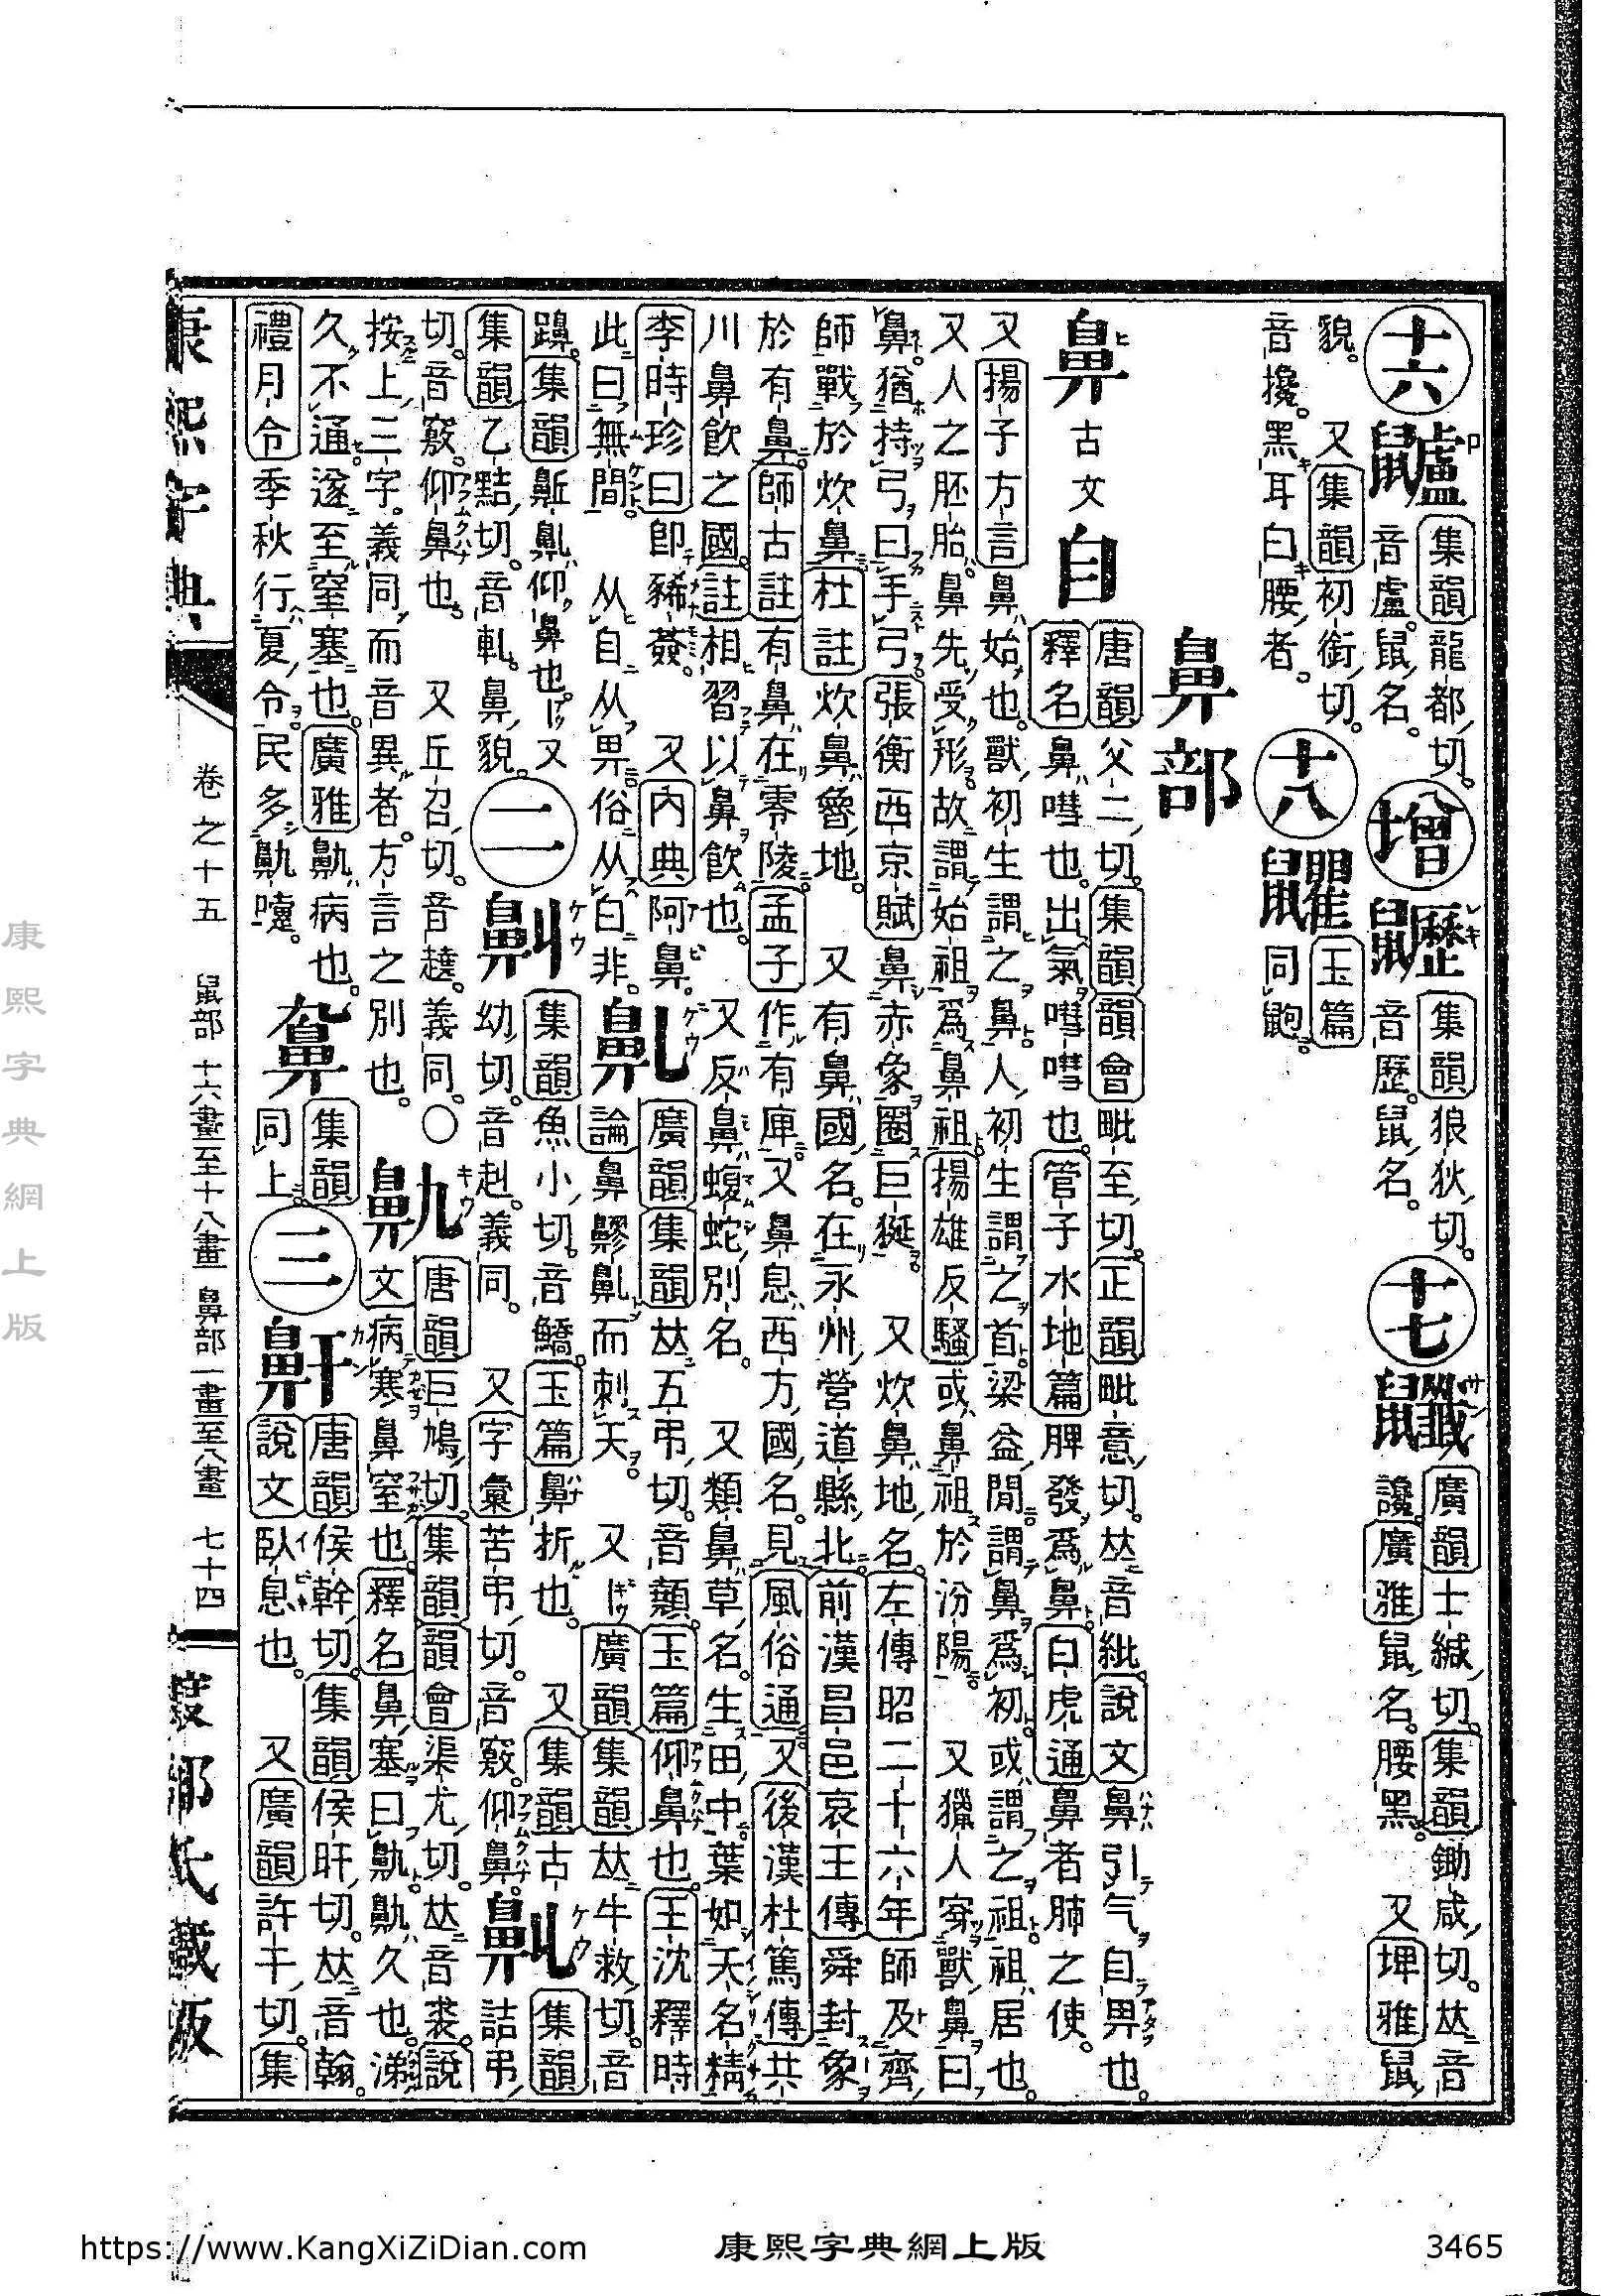 十六 鼠盧 集韻龍都切。
音盧。鼠名。
增 鼠歷 集韻狼狄切。
音歷。鼠名。
十七 鼠韱 廣韻士緘切。集韻鋤咸切。𠀤音
讒。廣雅鼠名。腰黑。 又埤雅鼠
貌。 又集韻初銜切。
音攙。黑耳白腰者。
十八 鼠瞿 玉篇
同鼩。
鼻部
鼻 古文 自 唐韻父二切。集韻韻會毗至切。正韻毗意切。𠀤音紕。說文鼻引气自畀也。
釋名鼻嘒也。出氣嘒嘒也。管子水地篇脾發爲鼻。白虎通鼻者肺之使。
又揚子方言鼻始也。獸初生謂之鼻人初生謂之首。梁益閒謂鼻爲初。或謂之祖。祖居也。
又人之胚胎鼻先受形。故謂始祖爲鼻祖。揚雄反騷或鼻祖於汾陽。 又獵人穿獸鼻曰
鼻。猶持弓曰手弓。張衡西京賦鼻赤象圈巨狿。 又炊鼻地名。左傳昭二十六年師及齊
師戰於炊鼻杜註炊鼻魯地。 又有鼻國名。在永州營道縣北。前漢昌邑哀王傳舜封象
於有鼻。師古註有鼻在零陵。孟子作有庳。又鼻息西方國名。見風俗通。又後漢杜篤傳共
川鼻飲之國。註相習以鼻飲也。 又反鼻蝮蛇別名。 又類鼻草名。生田中葉如天名精
李時珍曰卽豨薟。 又內典阿鼻。
此曰無間。 从自从畀。俗从白非。
鼼 廣韻集韻𠀤五弔切。音顤。玉篇仰鼻也。王沈釋時
論鼻䶧鼼而刺天。 又 廣韻集韻𠀤牛救切。音
䠗。集韻鼿鼼仰鼻也。 又
集韻乙黠切。音軋。鼻貌。
二 劓 集韻魚小切。音鱎。玉篇鼻折也。 又集韻古
幼切。音赳。義同。 又字彙苦弔切。音竅。仰鼻。
集韻詰弔
切。音竅。仰鼻也。 又丘召切。音趬。義同。〇
按上三字。義同而音異者。方言之別也。
鼽 唐韻巨鳩切。集韻韻會渠尤切。𠀤音裘。說
文病寒鼻窒也。釋名鼻塞曰鼽鼽久也。涕
久不通。遂至窒塞也。廣雅鼽病也。
禮月令季秋行夏令。民多鼽嚏。
集韻
同上。
三 鼾 唐韻侯幹切。集韻侯旰切。𠀤音翰。
說文臥息也。 又廣韻許干切。集
康熙字典
卷之十五 鼠部 十六畫至十八畫 鼻部 一畫至八畫 七十四
渡部氏藏版
康熙字典網上版
https://www.KangXiZiDian.com 康熙字典網上版 3465